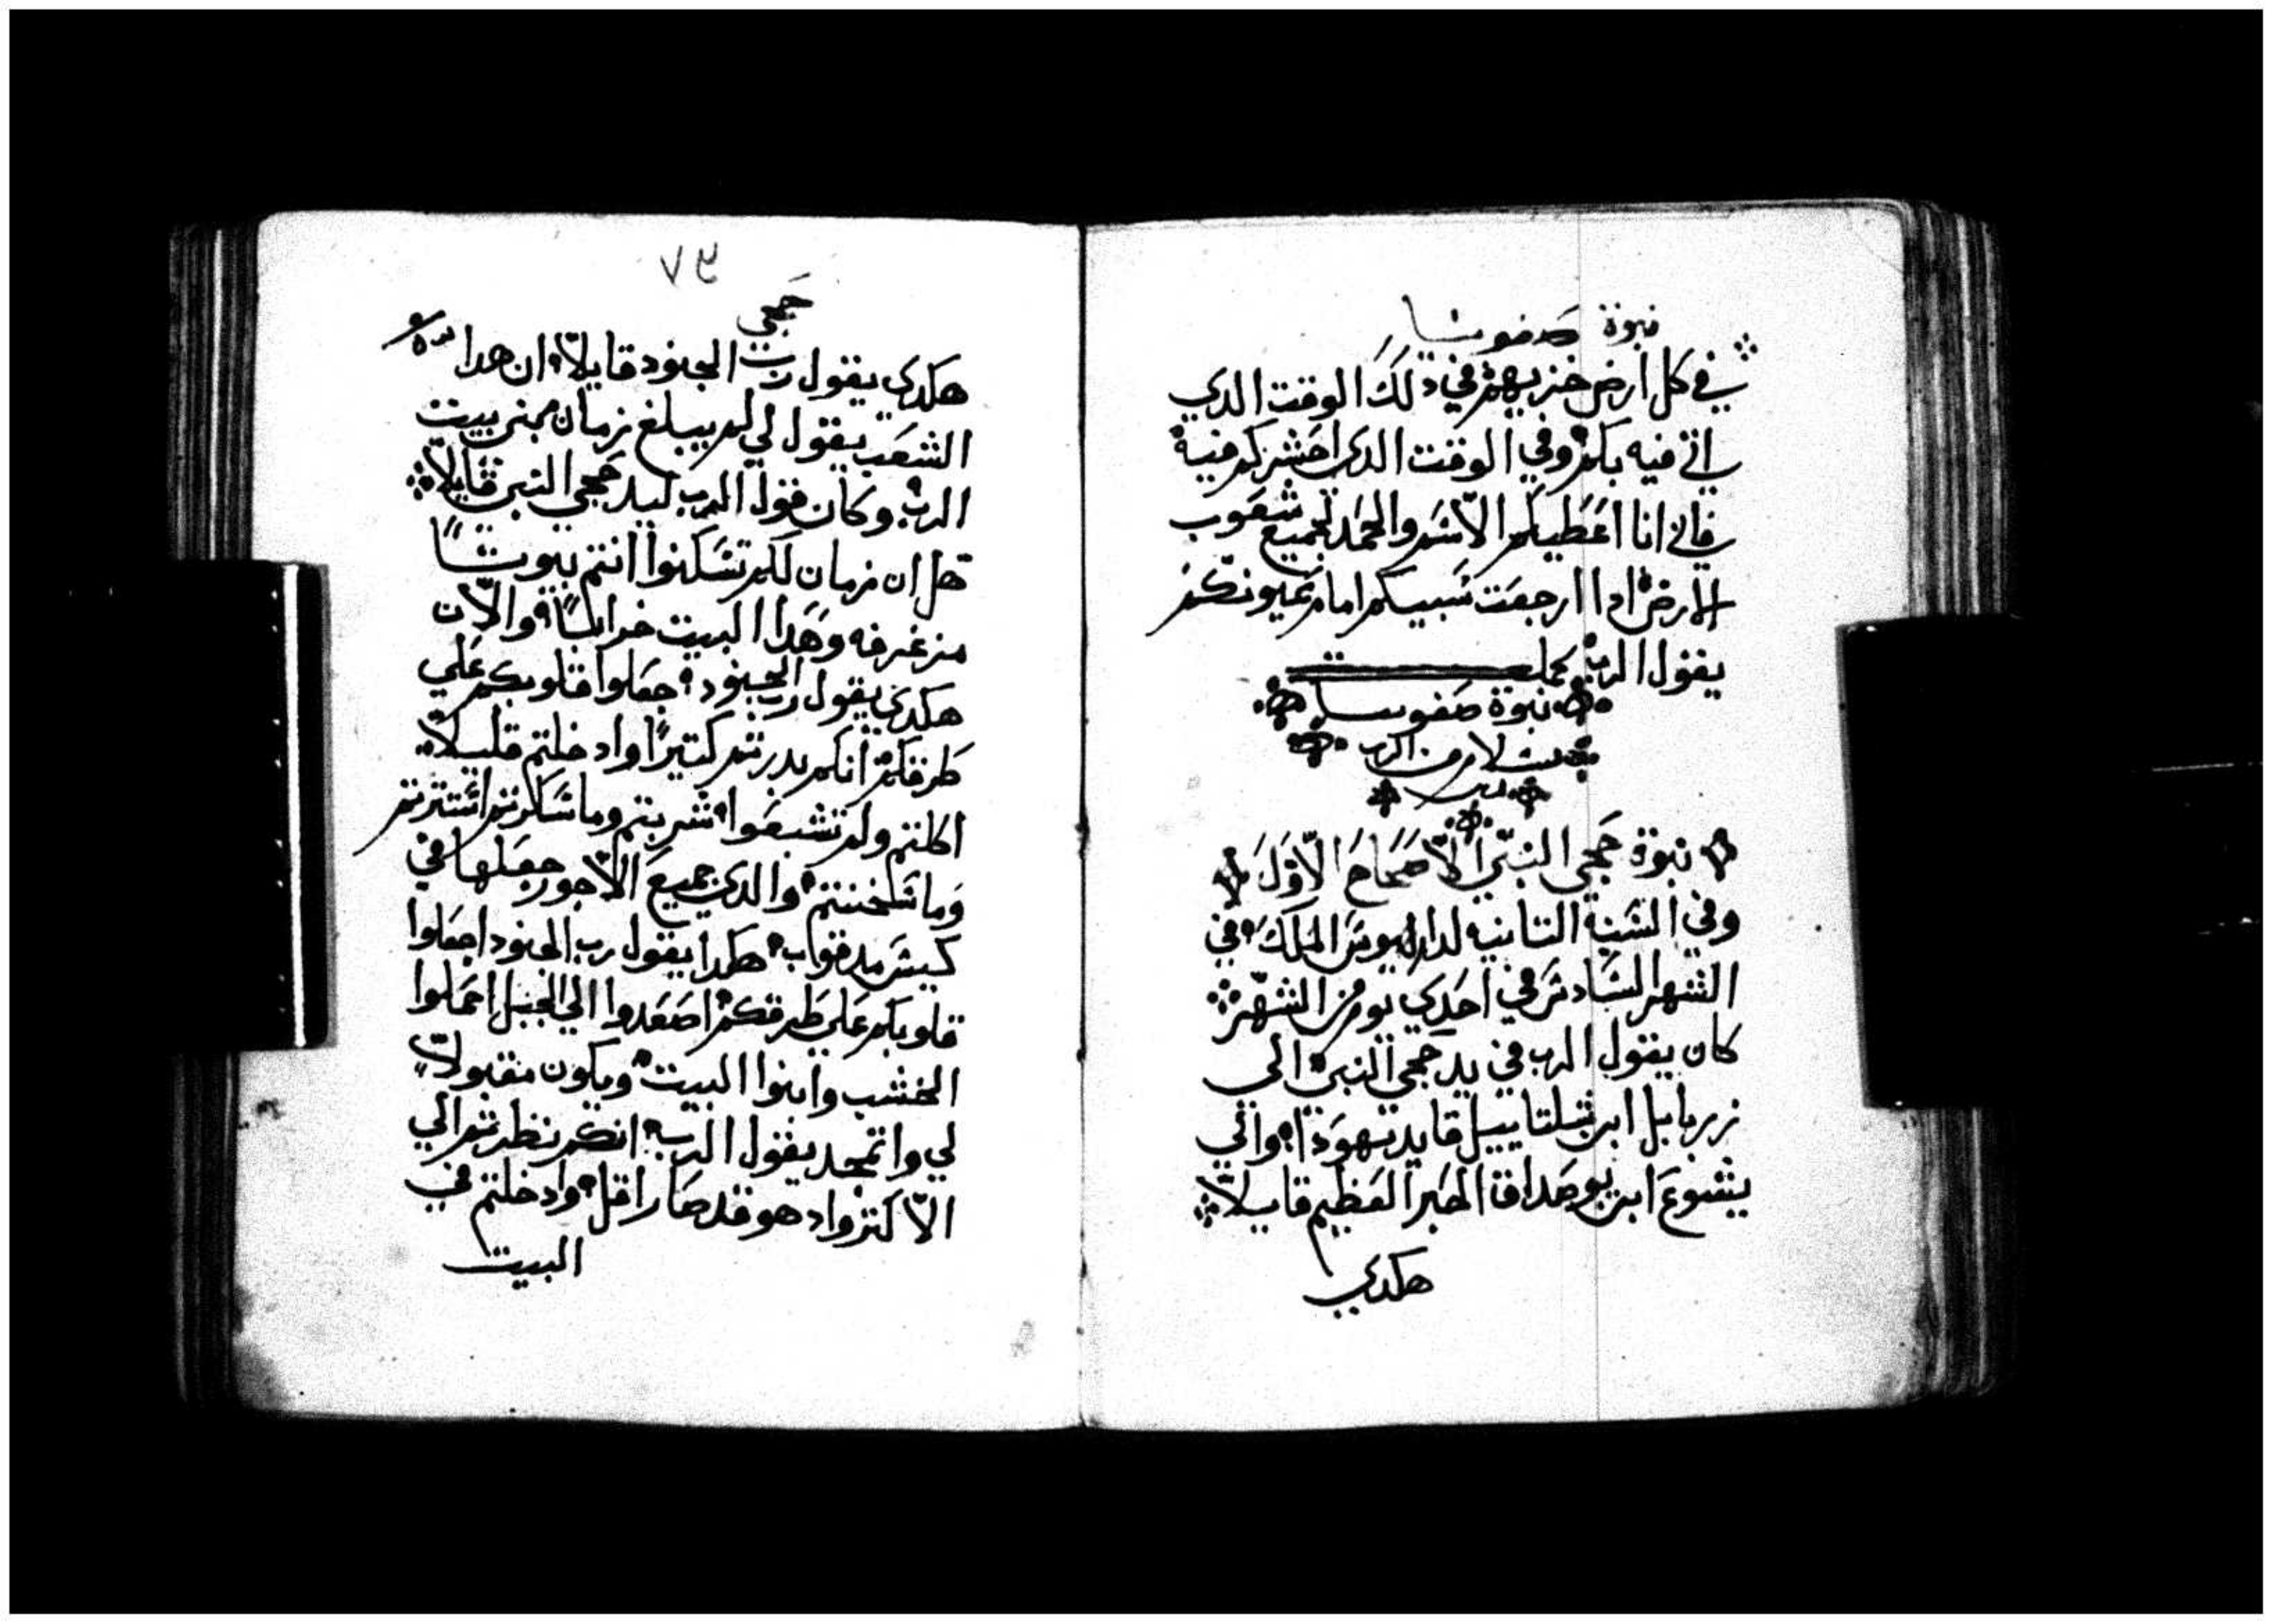 نبوة صفونيا
في كل ارض خزيهم في دلك الوقت الدي
اتي فيه بكم وفي الوقت الدي احشركم فيه
فاني انا اعطيكم الاسم والحمد لجميع شعوب
الارض ادا ارجعت سبيكم امام عيونكم
يقول الرب كملت
نبوة صفونيا
بسلام من الرب
امين
نبوة حجي النبي الاصحاح الاول
وفي السنه التانيه لداريوس الملك في
الشهر السادس في احدي يوم من الشهر
كان يقول الرب في يد حجي النبي الى
زربابل ابن شلتاييل قايد يهودا والي
يشوع ابن يوصداق الحبر العظيم قايلا
هكدي
٧٥
حجي
هكدي يقول رب الجنود قايلا ان هدا
الشعب يقول لي لم يبلغ زمان مبني بيت
الرب وكان قول الرب ليد حجي النبي قايلا
هل ان زمان لكم تسكنوا انتم بيوتا
من غرفه وهدا البيت خرابا والان
هكدي يقول رب الجنود اجعلوا قلوبكم علي
طرقكم انكم بدرتم كتيرا وادخلتم قليلا
اكلتم ولم تشبعوا شربتم وما سكرتم استترتم
وما سخنتم والدي جميع الاجور جعلها في
كيس مدقوب هكدا يقول رب الجنود اجعلوا
قلوبكم على طرقكم اصعدوا الي الجبل اعملوا
الخشب وابنوا البيت ويكون مقبولا
لي واتمجد يقول الرب انكم نظرتم الي
الاكتر واد هو قد صار اقل وادخلتم في
البيت